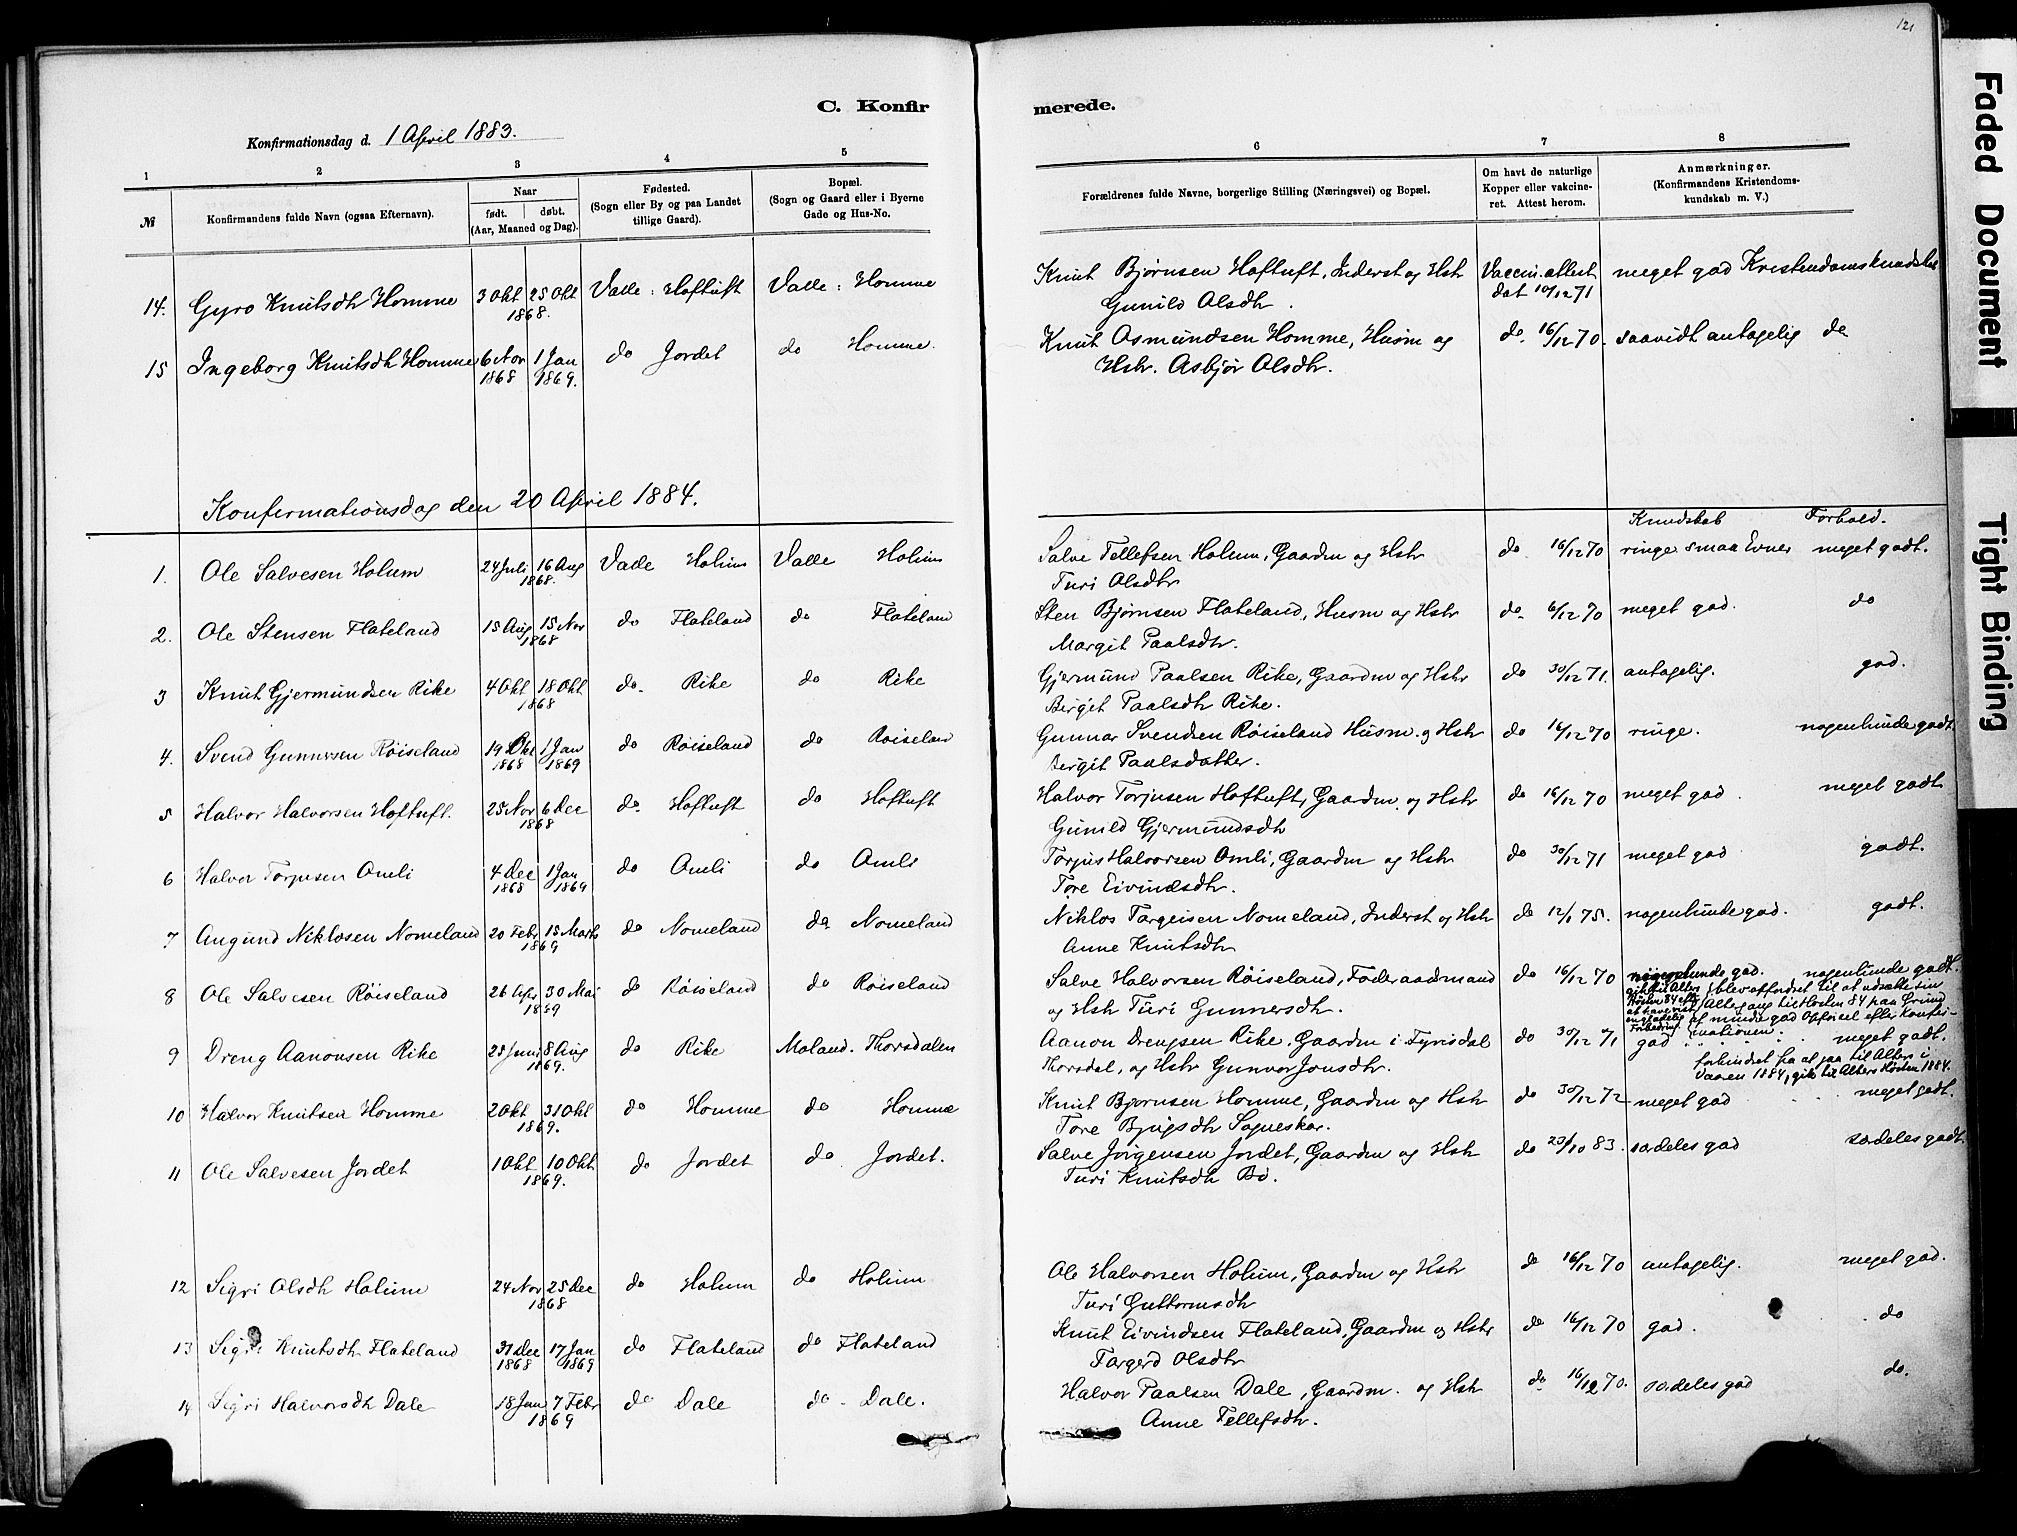 121
C. Konfir merede.
Konfirmationsdag d. 1 April 1883.
1 2 3 4 5 6 7 8
№ Konfirmandens fulde Navn (ogsaa Efternavn). Naar født. døbt. (Aar, Maaned og Dag). Fødested. (Sogn eller By og paa Landet tillige Gaard). Bopæl. (Sogn og Gaard eller i Byerne Gade og Hus-No.
Forældrenes fulde Navne, borgerlige Stilling (Næringsvei) og Bopæl. Om havt de naturlige Kopper eller vakcineret. Attest herom. Anmærkninger. (Konfirmandens Kristendomskundskab m. V.)
14. Gyro Knutsdtr Homme 3 Okt 25 Okt 1868. Valle: Hoftuft Valle: Homme Knut Bjørnsen Hoftuft, Inderst og Hstr Vaccin.attest meget god Kristendomskundskab
Gunild Olsdtr. dat 10/12 71
15 Ingeborg Knutsdtr Homme 6 Nov 1868 1 Jan 1869. do Jordet do Homme. Knut Asmundsen Homme, Husm og do. 16/12 70. saavidt antagelig do
Hstr. Asbjør Olsdtr.
Konfirmationsdag den 20 April 1884.
Kundskab Forhold.
1. Ole Salvesen Holum 24 Juli 16 Aug 1868. Valle Holum Valle Holum Salve Tellefsen Holum, Gaardm og Hstr do 16/12 70 ringe smaa Evner meget godt.
Turi Olsdtr
2. Ole Stensen Flateland 15 Aug 15 Nov 1868 do Flateland do Flateland Sten Bjørnsen Flateland, Husm og Hstr do 16/12 70 meget god. do
Margit Paalsdtr.
3 Knut Gjermundsen Rike 4 Okt 18 Okt 1868 do Rike do Rike Gjermund Paalsen Rike, Gaardm og Hstr do 30/12 71. antagelig. god.
Bergit Paalsdtr Rike.
4. Svend Gunnersen Røiseland 19 Okt 1868 1 Jan 1869 do Røiseland do Røiseland Gunnar Svendsen Røiseland Husm. og Hstr do 16/12 70 ringe. nogenlunde godt.
Bergit Paalsdatter.
5 Halvor Halvorsen Hoftuft. 25 Nov 6 Dec 1868 do Hoftuft do Hoftuft Halvor Torjusen Hoftuft, Gaardm. og Hstr do 16/12 70 meget god. meget godt
Gunild Gjermundsdtr
6 Halvor Torjusen Omli 4 Dec 1868 1 Jan 1869 do Omli do Omli Torjus Halvorsen Omli, Gaardm og Hstr do 30/12 71 meget god godt.
Tore Eivindsdtr.
7 Augund Niklosen Nomeland 20 Febr 15 Marts 1869 do Nomeland do Nomeland Niklos Targeisen Nomeland, Inderst og Hstr do 12/1 75. nogenlunde god. godt.
Anne Knutsdtr
8 Ole Salvesen Røiseland 26 Apr 30 Mai 1869 do Røiseland do Røiseland Salve Halvorsen Røiseland, Føderaadsmand do 16/12 70 nogenlunde god. nogenlunde godt.
og Hstr Turi Gunnersdtr. blev opfordret til at udsætte sin
Altergang til Høsten 84 paa Grund
af mindre god Opførsel efter Konfirmationen.
9 Dreng Aanonsen Rike 25 Juni 8 Aug 1869. do Rike Moland. Thorsdalen Aanon Drengsen Rike, Gaardm i Fyrisdal do 30/12 71 god meget godt.
Thorsdal, og Hstr Gunvor Jonsdtr. forhindret fra at gaa til Alters i
Vaaren 1884, gik til Alters Høsten 1884.
10 Halvor Knutsen Homme 2 Okt 31 Okt 1869. do Homme do Homme Knut Bjørnsen Homme, Gaardm og Hstr do 30/12 72 meget god meget godt.
Tore Bjugsdtr
11 Ole Salvesen Jordet 1 Okt 10 Okt 1869. do Jordet do Jordet. Salve Jørgensen Jordet, Gaardm og Hstr do 23/10 83. særdeles god særdeles godt.
Turi Knutsdtr Bø.
12 Sigri Olsdtr Holum 24 Nov 25 Dec 1868 do Holum do Holum Ole Halvorsen Holum, Gaardm og Hstr do 16/12 70 antagelig. meget god.
Turi Guttormsdtr
13 Sigri Knutsdtr Flateland 31 Dec 1868 17 Jan 1869 do Flateland do Flateland Knut Eivindsen Flateland, Gaardm og Hstr do 16/12 70 god. do
Targerd Olsdtr
14 Sigri Halvorsdtr Dale 18 Jan 7 Febr 1869 do Dale do Dale. Halvor Paalsen Dale, Gaardm. og Hstr do 16/12 70. særdeles god do.
Anne Tellefsdtr.
Faded Document
Tight Binding